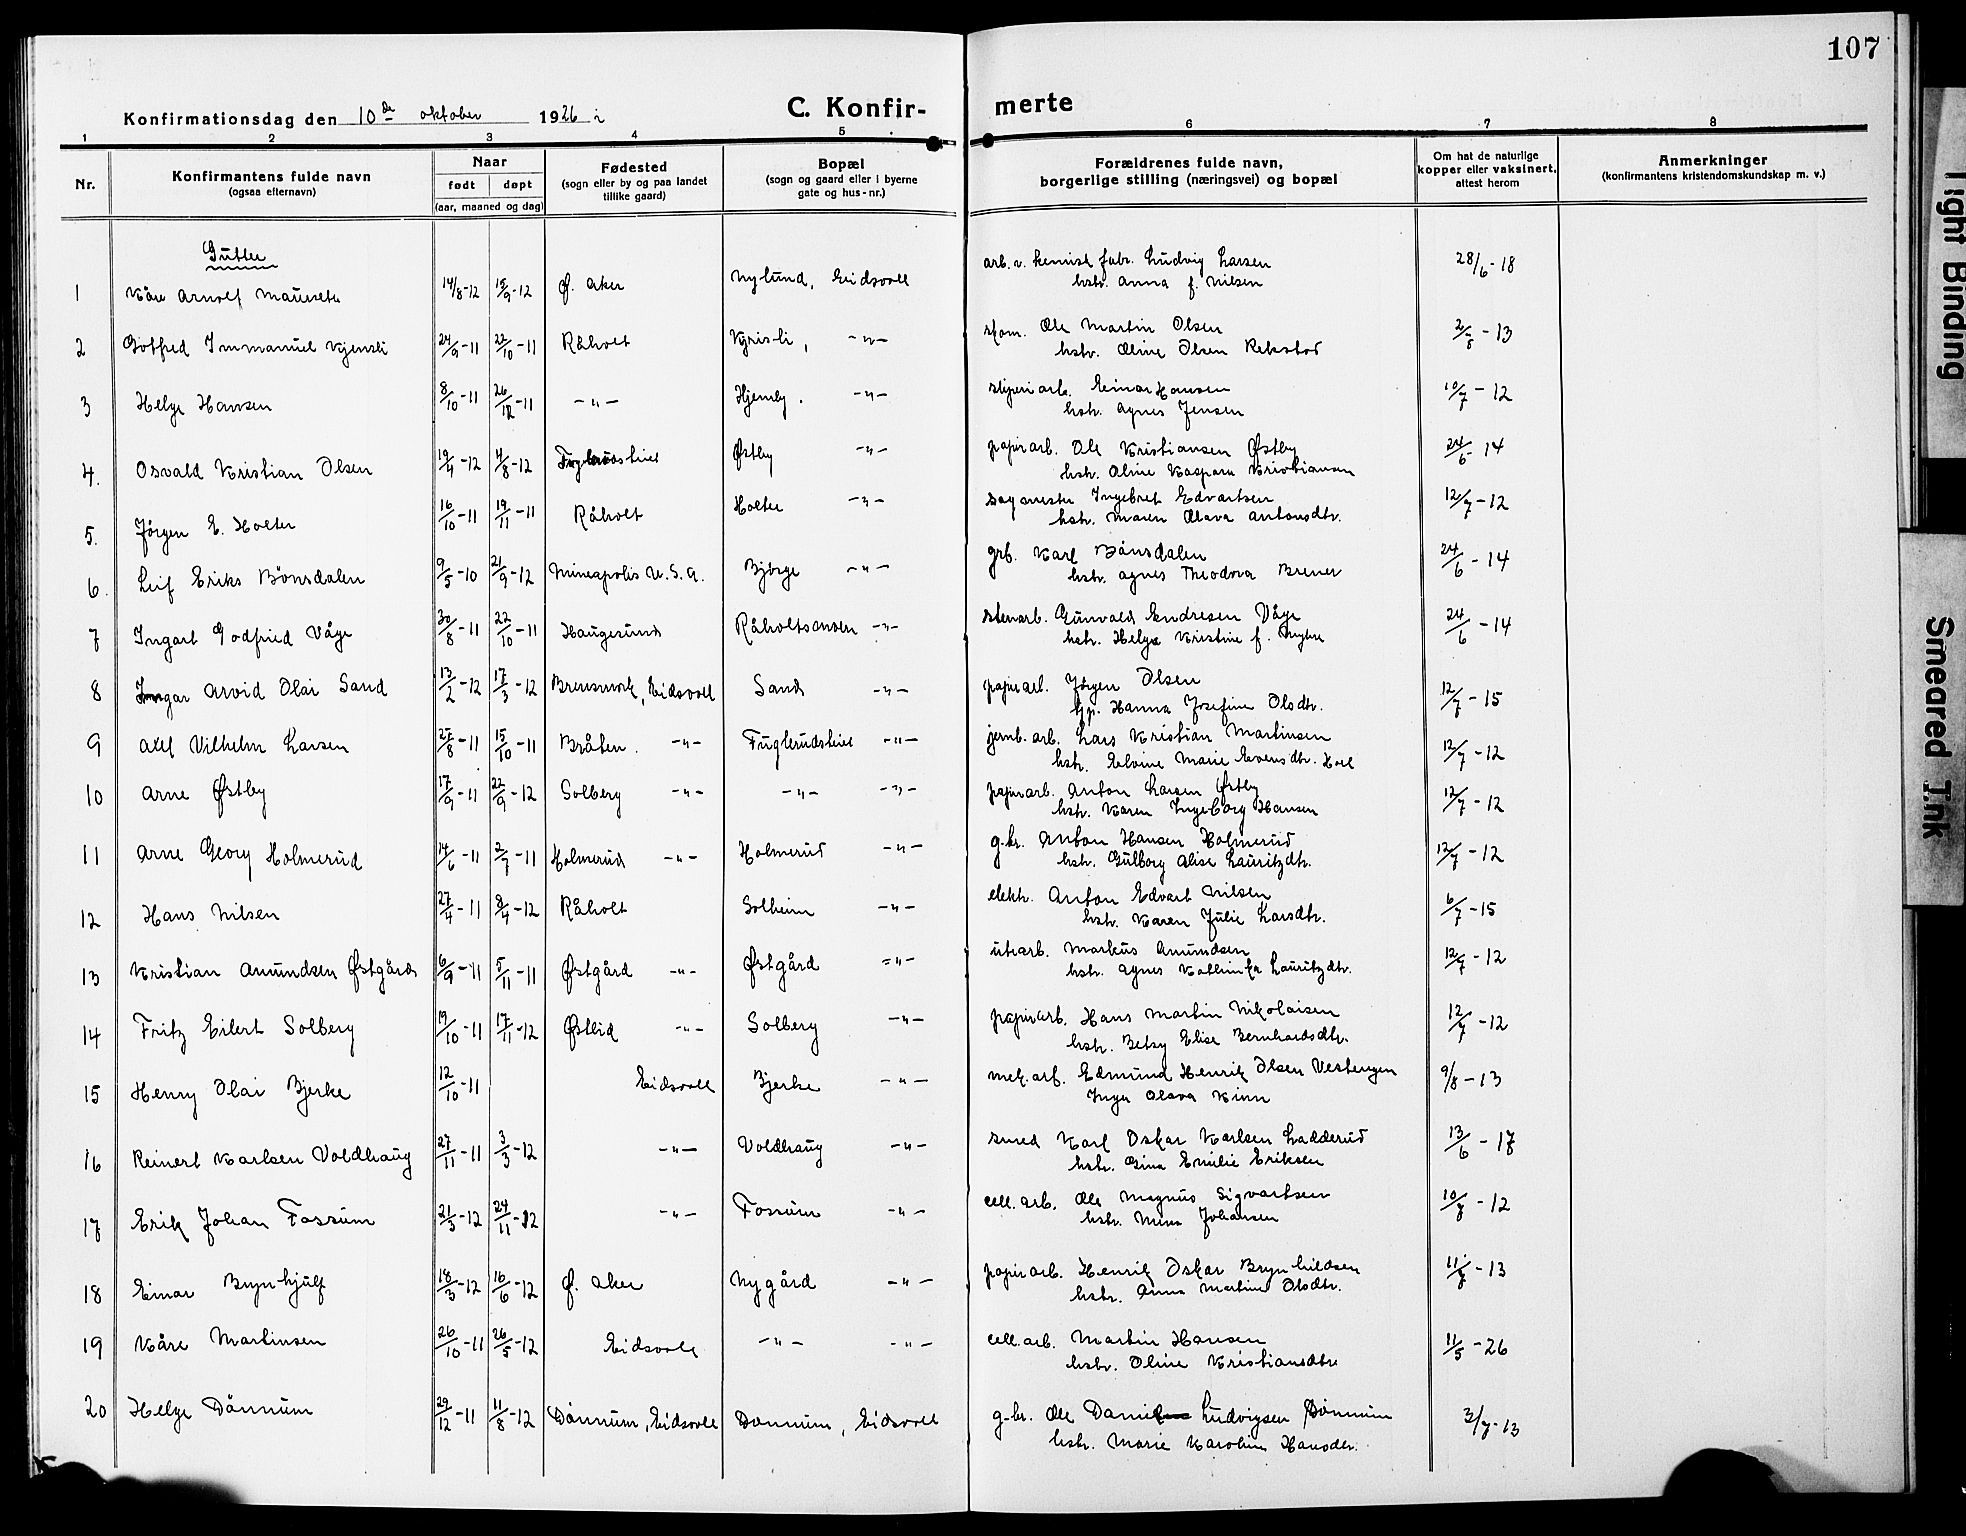 107
Konfirmationsdag den 10de oktober 1926 i
C. Konfir-
merte
1 2 3 4 5 6 7 8
Nr.
Konfirmantens fulde navn
(ogsaa efternavn)
Naar
født døpt
(aar, maaned og dag)
Fødested
(sogn eller by og paa landet
tillike gaard)
Bopæl
(sogn og gaard eller i byerne
gate og hus-nr.)
Forældrenes fulde navn,
borgerlige stilling (næringsvei) og bopæl
Om hat de naturlige
kopper eller vaksinert,
attest herom
Anmerkninger
(konfirmantens kristendomskundskap m. v.)
Gutter
1 Kåre Arnolf 14/8-12 15/9-12 Ø. Aker Nylund, Eidsvoll arb. v. kemisk fabr. Ludvig Larsen 28/6-18
hstr. Anna f. Nilsen
2 Gotfred Immanuel 24/9-11 22/10-11 Råholt -"- Ole Martin Olsen -13
hstr. Oline Olsen Rekstad
3 Helge Hansen 8/10-11 26/12-11 -"- Hjemly. -"- sliperiarb. Einar Hansen 10/7-12
hstr. Agnes Jensen
4. Osvald Kristian Olsen 19/4-12 4/8-12 Østby -"- papirarb. Ole Kristiansen Østby 24/6-14
hstr. Oline Kaspara Kristiansen
5. Jørgen E. Holter 16/10-11 19/11-11 Råholt Holter -"- sagmester Ingebret Edvartsen 12/7-12
hstr. Maren Olava Antonsdtr.
6. Leif Eriks Bönsdalen 9/5-10 21/9-12 Mineapolis U.S.A. Bjørge -"- grb. Karl Bönsdalen 24/6-14
hstr. Agnes Theodora Brener
7 Ingart Godfried Våge 30/8-11 22/10-11 Haugesund Råholtsansen -"- stenarb. Gunvald Endresen Våge 24/6-14
hstr. Helga Kristine f. Myhre
8 Ingar Arvid Olai Sand 13/2-12 17/3-12 Brensmork, Eidsvoll Sand -"- papirarb. Jörgen Olsen 12/7-15
Hanna Josefine Olsdtr.
9 Axel Vilhelm Larsen 27/8-11 15/10-11 Bråten. -"- Fuglerudsteiet -"- jernb. arb. Lars Kristian Martinsen 12/7-12
hstr. Elvine Marie Evensdtr.
10 Arne Østby 17/9-11 22/9-12 Solberg -"- -"- -"- papirarb. Anton Larsen Østby 12/7-12
hstr. Karen Ingeborg Hansen
11 Arne Georg Holmerud 14/6-11 2/7-11 Holmerud -"- Holmerud -"- g.br. Anton Hansen Holmerud 12/7-12
hstr. Gulborg Alise Lauritzdtr.
12 Hans Nilsen 27/4-11 8/4-12 Råholt Solheim -"- elektr. Anton Edvart Nilsen 6/7-15
hstr. Karen Julie Larsdtr.
13 Kristian Amundsen Østgård 6/9-11 5/11-11 Østgård -"- Østgård -"- utearb. Markus Amundsen 12/7-12
hstr. Agnes Lauritzdtr.
14 Fritz Eilert Solberg 19/10-11 17/11-12 Østlid -"- Solberg -"- papirarb. Hans Martin Nikolaisen 12/7-12
hstr. Betsy Elise Bernhardsdtr.
15 Henry Olai Bjerke 12/10-11 Eidsvoll Bjerke -"- mek. arb. Edmund Henrik Olsen Vestengen 9/8-13
Inga Olava Kinn
16 Reinert Karlsen Voldhaug 27/11-11 3/3-12 -"- Voldhaug -"- smed Karl Oskar Karlsen Ladderud 13/6-17
hstr. Gina Emilie Eriksen
17 Erik Johan Fossum 21/3-12 24/11-12 -"- Fossum -"- cell. arb. Ole Magnus Sigvartsen -12
hstr. Johansen
18 Einar Brynhjulf 18/3-12 16/6-12 Ø. Aker Nygård -"- papirarb. Henrik Oskar Brynhildsen -13
hstr. Anna Martine Olsdtr.
19 Kåre Martinsen 26/10-11 26/5-12 Eidsvoll -"- -"- cell. arb. Martin Hansen 11/5-26
hstr. Oline Kristiansdtr
20 Helge Dönnum 29/12-11 11/8-12 Dönnum, Eidsvoll Dönnum, Eidsvoll g-br. Ole Daniel Ludvigsen Dönnum 3/7-13
hstr. Marie Karoline Hansdtr.
Tight Binding
Smeared Ink